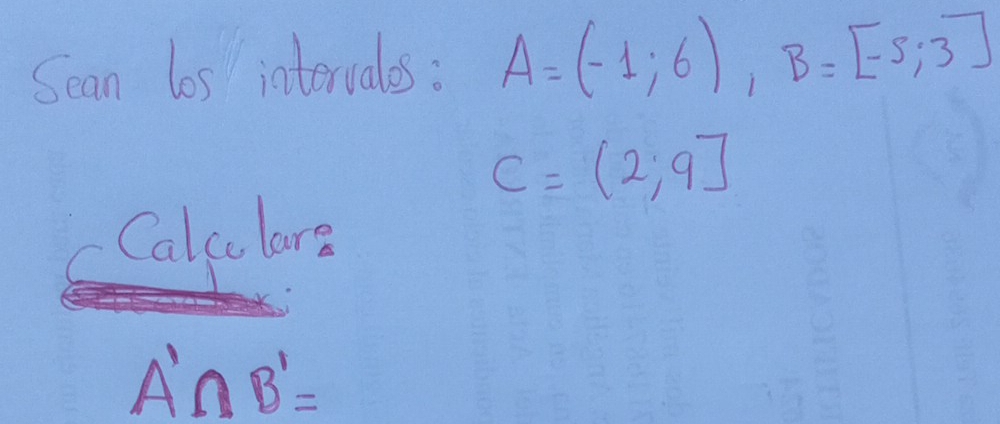 Sean los intervalos: A=(-1;6), B=[-5;3]
C=(2;9]
Calcular:
A'∩B'=